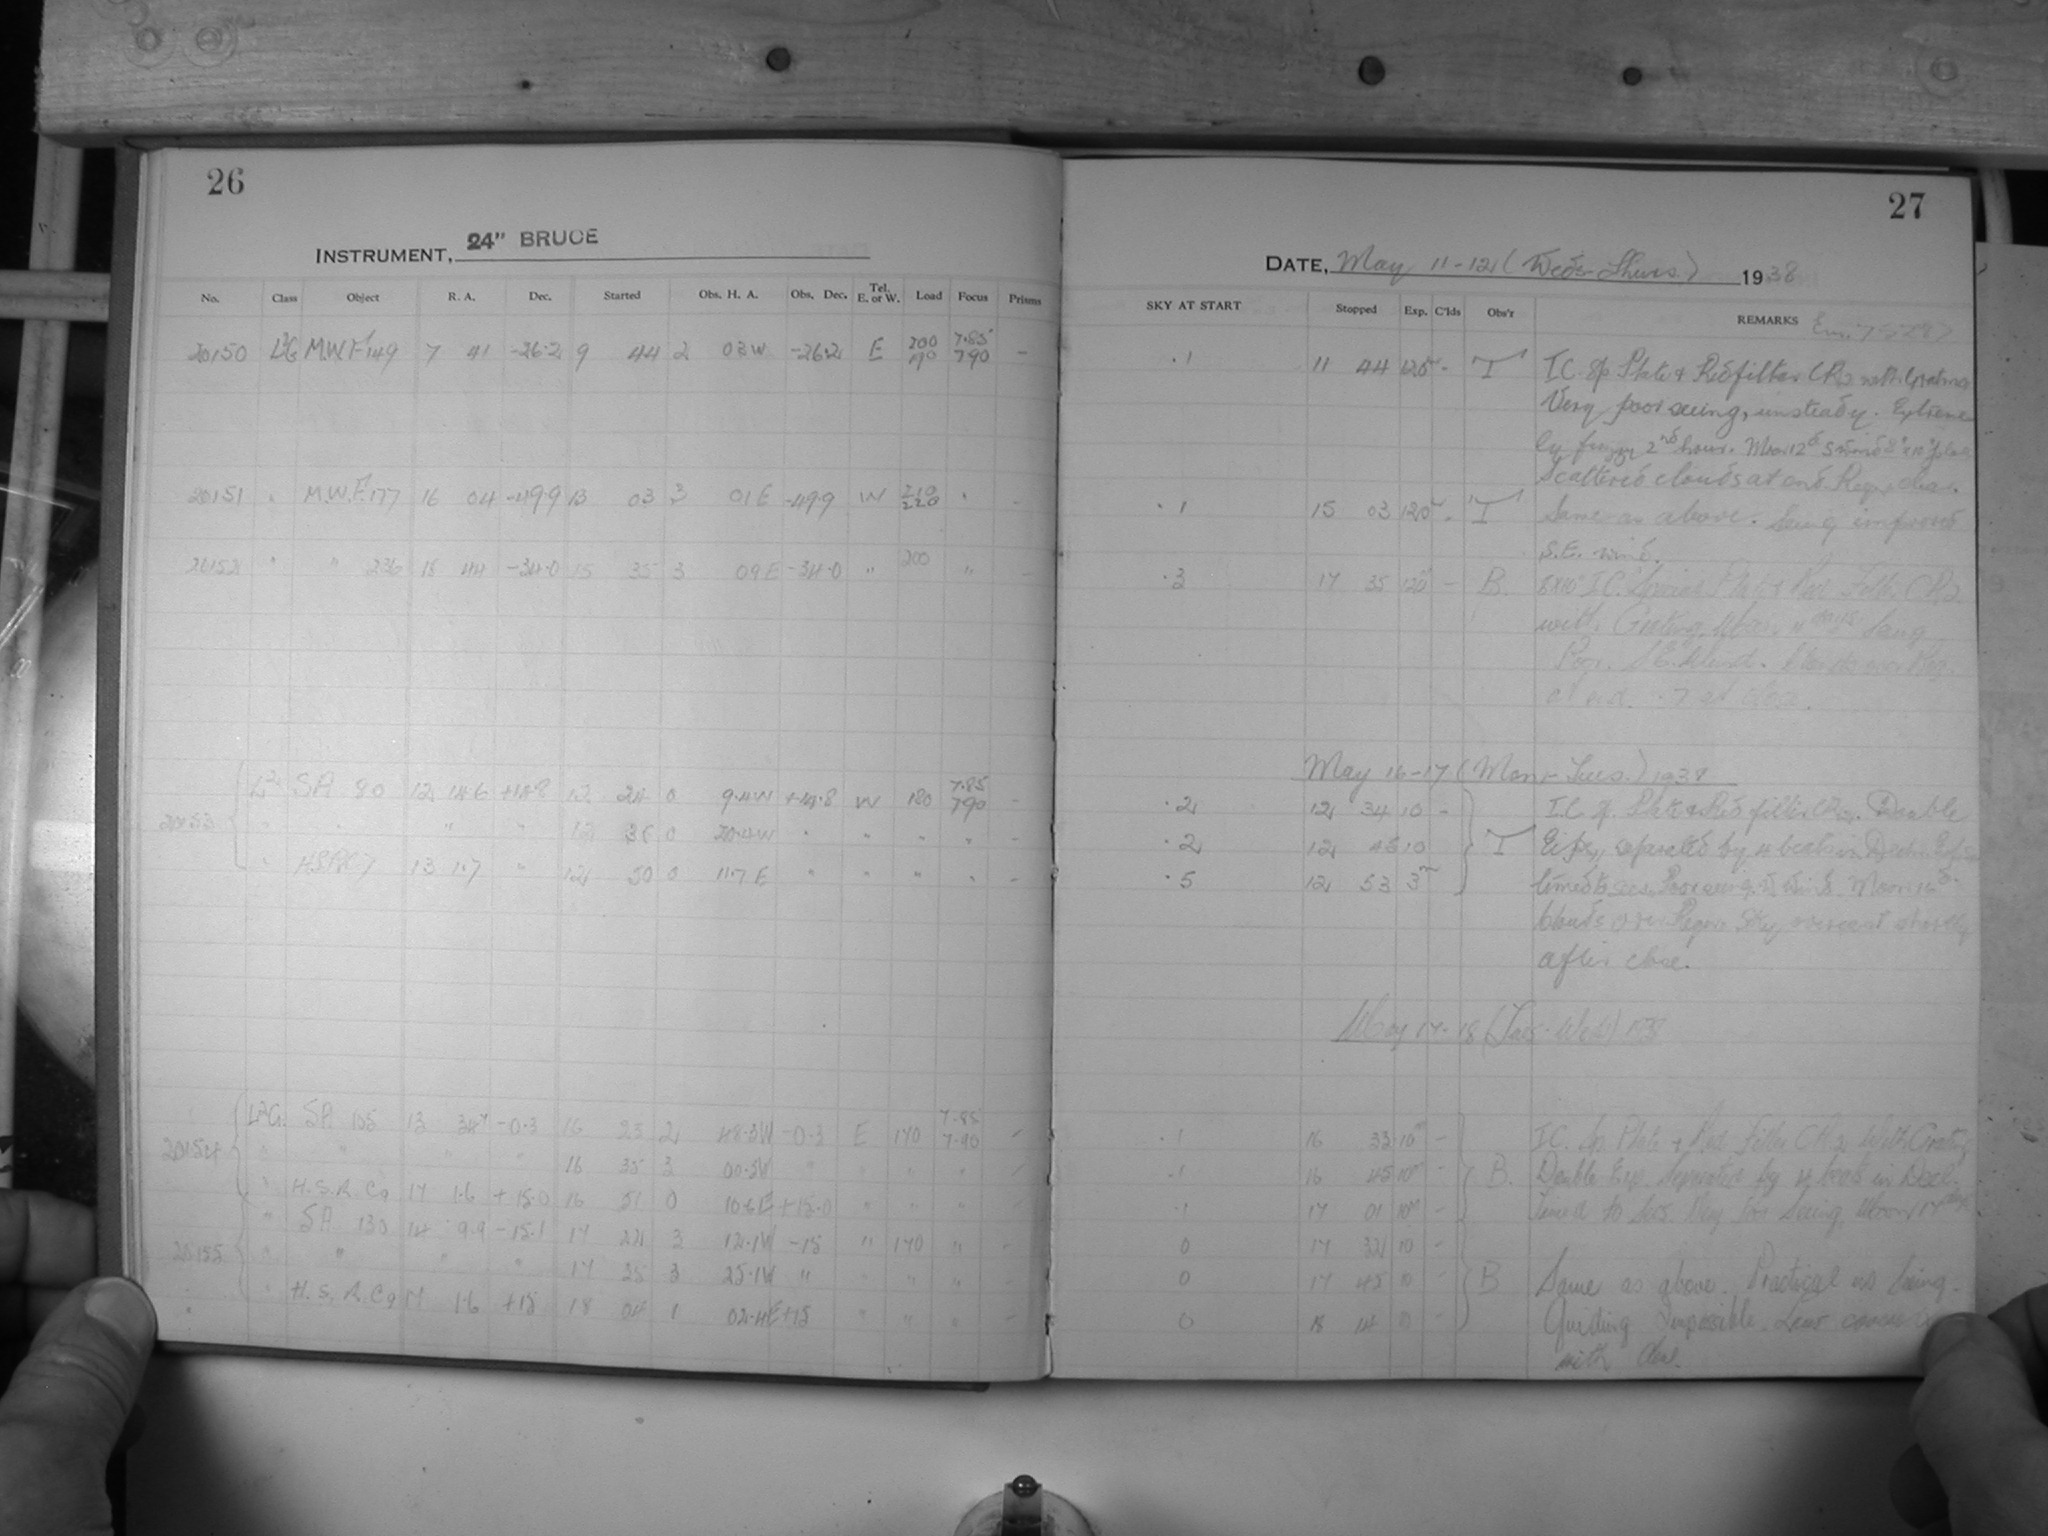 26
INSTRUMENT, 24" BRUCE
No. Class Object R. A. Dec. Started Obs. H. A. Obs. Dec. Tel. E. or W. Load Focus Prisms
20150 M.W.F. 149 7 41 -26.2 9 44 2 03 W -26.2 E 200 190 7.85 7.90 -
20151 " M.W.F. 177 16 04 -49.9 13 03 3 01 E -49.9 W 210 220 " -
20152 " " 236 18 44 -34.0 15 35 3 09 E -34.0 " 200 " -
20153 SA 80 12 14.6 +14.8 12 24 0 9.4W +14.8 W 180 7.85 7.90 -
" " " " 12 35 0 " " " " -
" 13 1.7 " 12 50 0 11.7 E " " " " -
20154 L2G. SA 105 13 -0.3 16 23 2 48.3W -0.3 E 170 7.85 7.90 -
" " " " 16 35 3 00.3W " " " " -
" H.S.A. C9 17 1.6 +15.0 16 51 0 10.6E +15.0 " " " -
20155 " SA 130 14 9.9 -15.1 17 22 3 12.1W -15 " 170 " -
" " " " 17 35 3 25.1W " " " " -
" H.S.A. C9 17 1.6 +15 18 04 1 02.4E +15 " " " -
27
DATE, May 11-12 (Weds-Thurs.) 1938
SKY AT START Stopped Exp. C'lds Obs'r REMARKS
.1 11 44 120 - T I.C. sp Plate & Red filter CR2 with Grating
Very poor seeing, unsteady. Extreme
ly fuzzy 2nd hour. Moon 12d S wind 8"x10" plate
Scattered clouds at end. Region clear.
.1 15 03 120 - T Same as above. Seeing improved
S.E. wind.
.3 17 35 120 - B. 8x10" I.C. Special Plate & Red Filter CR2
with Grating. Moon 11 days Seeing
Poor. S.E. Wind. Clouds over Reg.
at end. .7 at close.
May 16-17 (Mon-Tues.) 1938
.2 12 34 10 - I.C. sp. Plate & Red filter CR2. Double
.2 12 45 10 T Exp., separated by 4 beats in Decln.
.5 12 53 3 Poor seeing. Wind. Moon 16d.
Clouds over Region. Sky overcast shortly
after close.
May 17-18 (Tues-Wed) 1938
.1 16 33 10 - I.C. Sp. Plate & Red Filter CR2 With Grating
.1 16 45 10 - B. Double Exp. Separated by 4 beats in Decl.
.1 17 01 10 - Timed to Secs. Very Poor Seeing, Moon 17 days
0 17 32 10 -
0 17 45 10 - B Same as above. Practical no Seeing.
0 18 14 10 - Guiding Impossible. Lens
with dew.